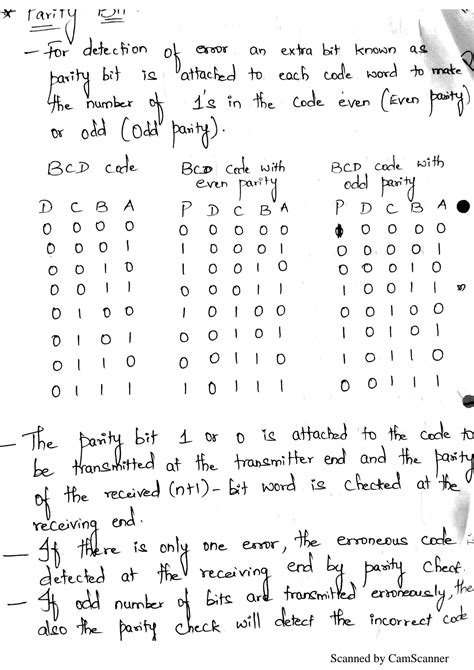 * Parity Bit
- For detection of error an extra bit known as
parity bit is attached to each code word to make
the number of 1's in the code even (Even parity)
or odd (Odd parity).
BCD code BCD code with even parity BCD code with odd parity
D C B A P D C B A P D C B A
0 0 0 0 0 0 0 0 0 1 0 0 0 0
0 0 0 1 1 0 0 0 1 0 0 0 0 1
0 0 1 0 1 0 0 1 0 0 0 0 1 0
0 0 1 1 0 0 0 1 1 1 0 0 1 1
0 1 0 0 1 0 1 0 0 0 0 1 0 0
0 1 0 1 0 0 1 0 1 1 0 1 0 1
0 1 1 0 0 0 1 1 0 1 0 1 1 0
0 1 1 1 1 0 1 1 1 0 0 1 1 1
- The parity bit 1 or 0 is attached to the code to
be transmitted at the transmitter end and the parity
of the received (n+1)-bit word is checked at the
receiving end.
- If there is only one error, the erroneous code
detected at the receiving end by parity check.
- If odd number of bits are transmitted erroneously, the
also the parity check will detect the incorrect code
Scanned by CamScanner